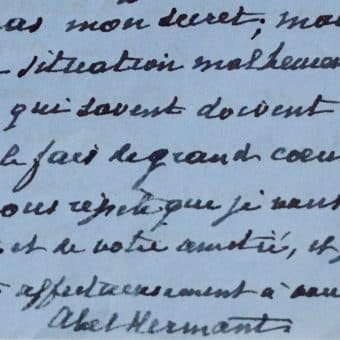 as mon secret; mai
situation malheureu
qui savent doivent
le fais de grand coeur
vous répète que je vous
et de votre amitié, et
affectueusement à vou
Abel Hermant